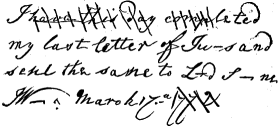 I have this Day completed
my last letter of Ju—s and
sent the same to L—d S—h.
W—. March 17th 1772